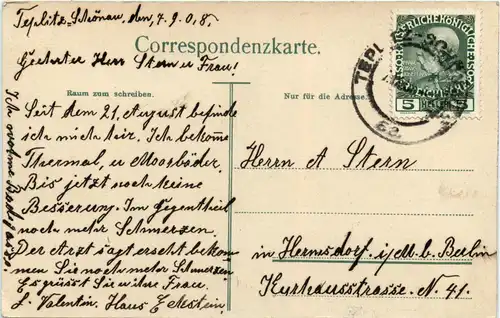 Teplitz-Schönau den, 7.9.08.
Correspondenzkarte.
Geehrter Herr Stern u Frau!
Raum zum schreiben.
Nur für die Adresse.
Seit dem 21. August befinde
ich mich hir. Ich bekome
Thermal, u Moorbäder.
Bis jetzt noch keine
Besserung. Im Gegentheil
noch mehr Schmerzen.
Der Arzt sagt erscht bekom
men Sie noch mehr Schmerzen
Es grüsst Sie u ihre Frau.
L. Valentin, Haus Edelstein,
Ich wohne
Herrn A Stern
in Hermsdorf i/M b. Berlin
Kurhausstrasse. N. 41.
5 HELLER 5
TEPLITZ-SCHÖNAU